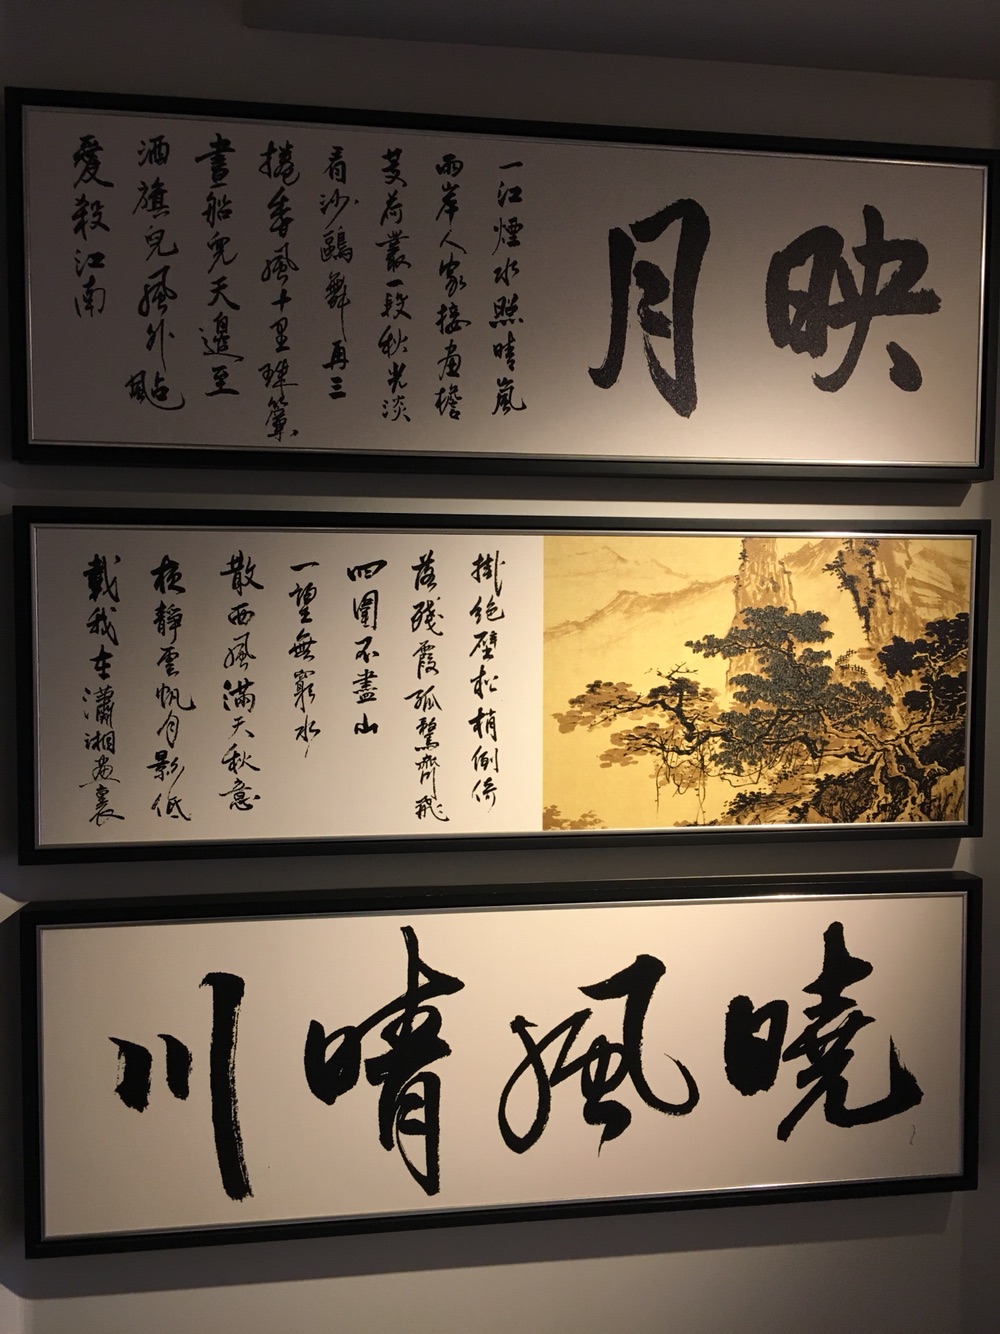 映月
一江煙水照晴嵐
兩岸人家接畫檐
芰荷叢一段秋光淡
看沙鷗舞再三
捲香風十里珠簾
畫船兒天邊至
酒旗兒風外颭
愛殺江南
掛絕壁松梢倒倚
落殘霞孤鶩齊飛
四圍不盡山
一望無窮水
散西風滿天秋意
夜靜雲帆月影低
載我在瀟湘畫裏
曉風晴川